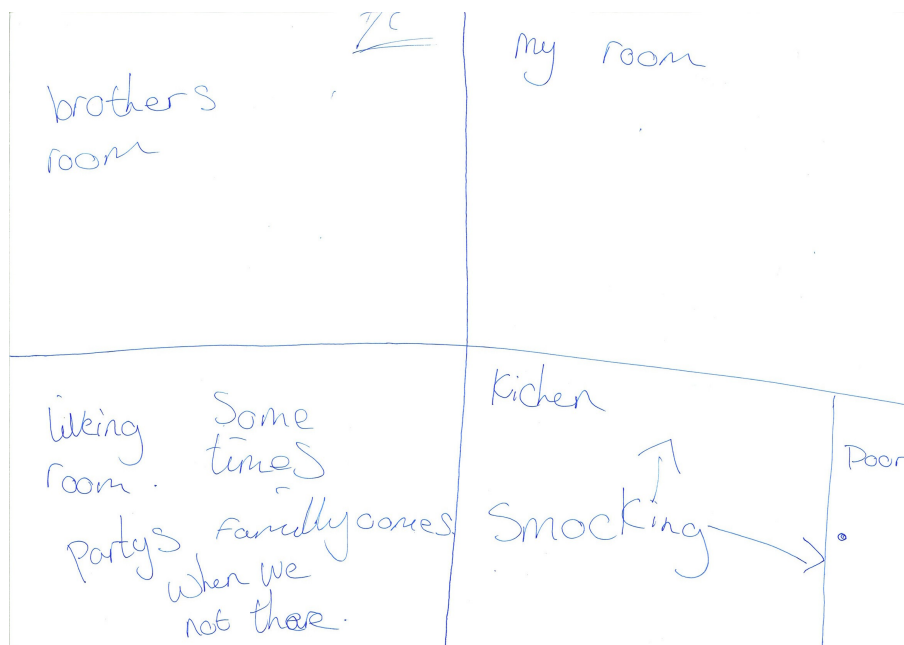 7/c
brothers
room
my room
liveing
room.
Some
times
Partys familly comes
when we
not there.
Kichen
Smocking
Door